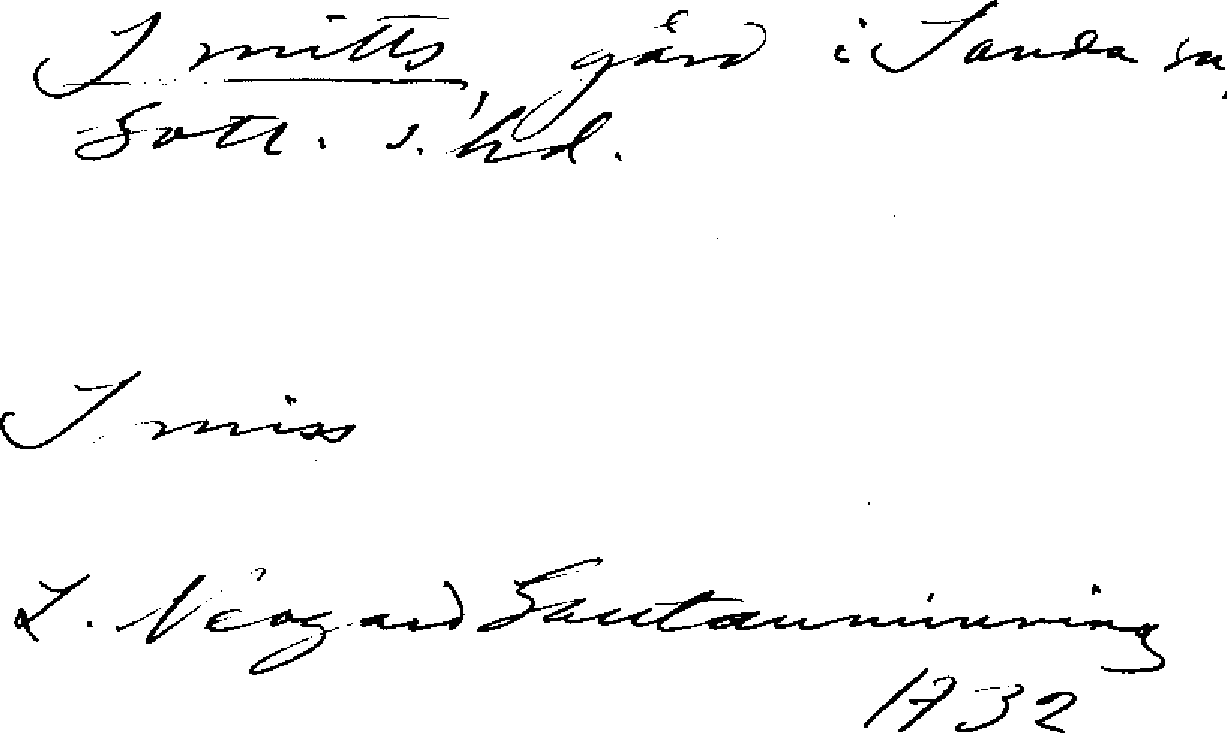 Smitts, gård i Sanda sn,
Gotl. s. hd.
Smiss
L. Neogard Gautauminning
1732